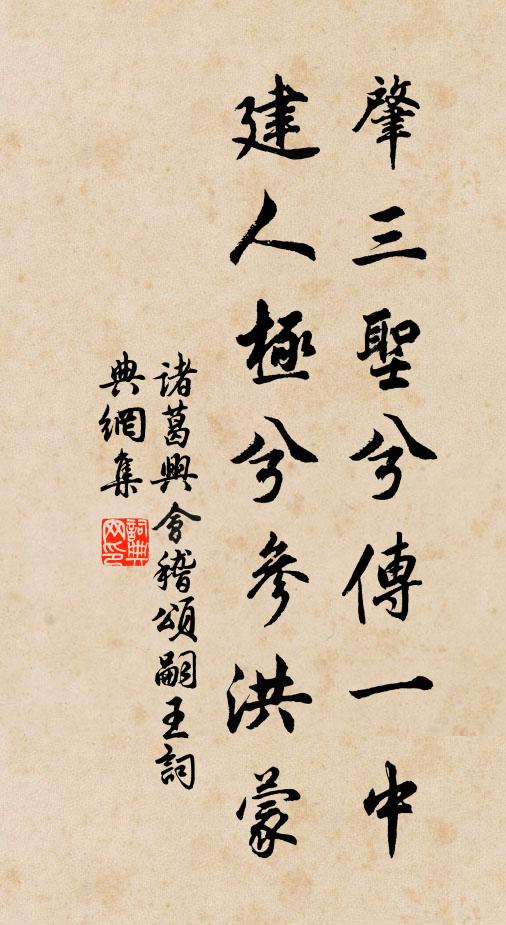 肇三聖兮傳一中
建人極兮參洪蒙
諸葛興會稽頌嗣王詞
典網集
詞典網印